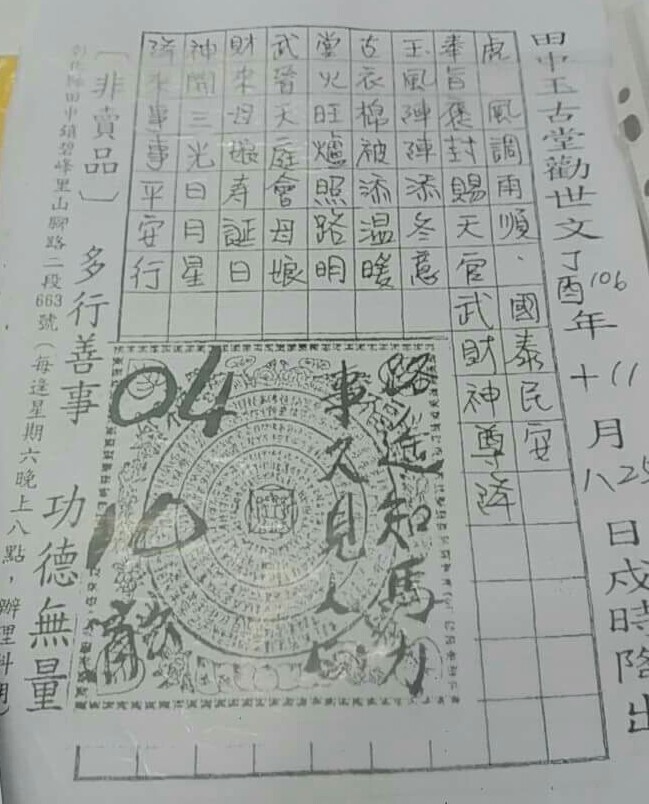 田中玉古堂勸世文丁酉年十月八日戌時降出
106 11 25
虎 風調雨順、國泰民安
奉旨褒封賜天官武財神尊降
玉風陣陣添冬意
古衣棉被添温暖
堂火旺爐照路明
武晉天庭會母娘
財來母娘寿誕日
神開三光日月星
降來事事平安行
路遥知馬力
事久見人心
04
10
〔非賣品〕 多行善事 功德無量
彰化縣田中鎮碧峰里山腳路二段663號(每逢星期六晚上八點,辦理科